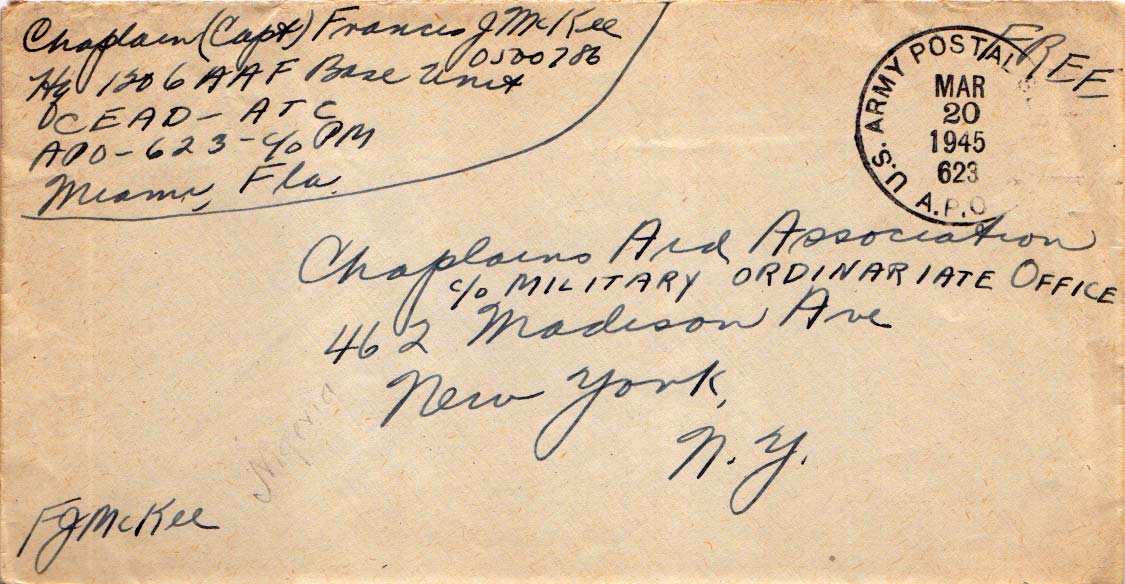 Chaplain (Capt) Francis J McKee
0500786
Hq 1206 AAF Base Unit
CEAD - ATC
APO - 623 - c/o PM
Miami, Fla.
FREE
U.S. ARMY POSTAL
MAR
20
1945
623
A.P.O
Chaplains Aid Association
c/o MILITARY ORDINARIATE OFFICE
462 Madison Ave
New York,
N.Y.
Nigeria
FJMcKee